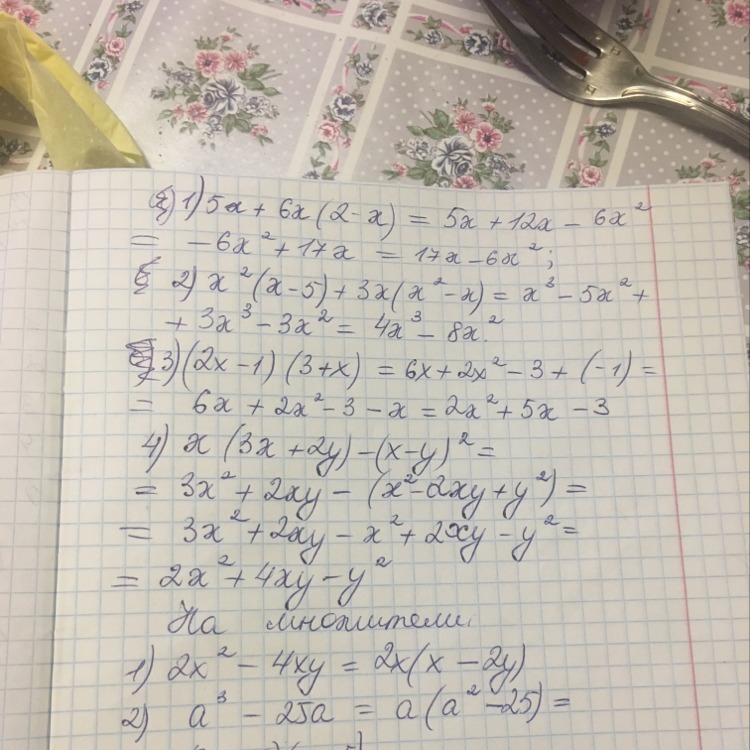 1) 5x + 6x(2 - x) = 5x + 12x - 6x²
= -6x² + 17x = 17x - 6x²;
2) x²(x - 5) + 3x(x² - x) = x³ - 5x² +
+ 3x³ - 3x² = 4x³ - 8x².
3) (2x - 1) (3 + x) = 6x + 2x² - 3 + (-1) =
= 6x + 2x² - 3 - x = 2x² + 5x - 3
4) x (3x + 2y) - (x - y)² =
= 3x² + 2xy - (x² - 2xy + y²) =
= 3x² + 2xy - x² + 2xy - y² =
= 2x² + 4xy - y²
На множители.
1) 2x² - 4xy = 2x(x - 2y)
2) a³ - 25a = a(a² - 25) =